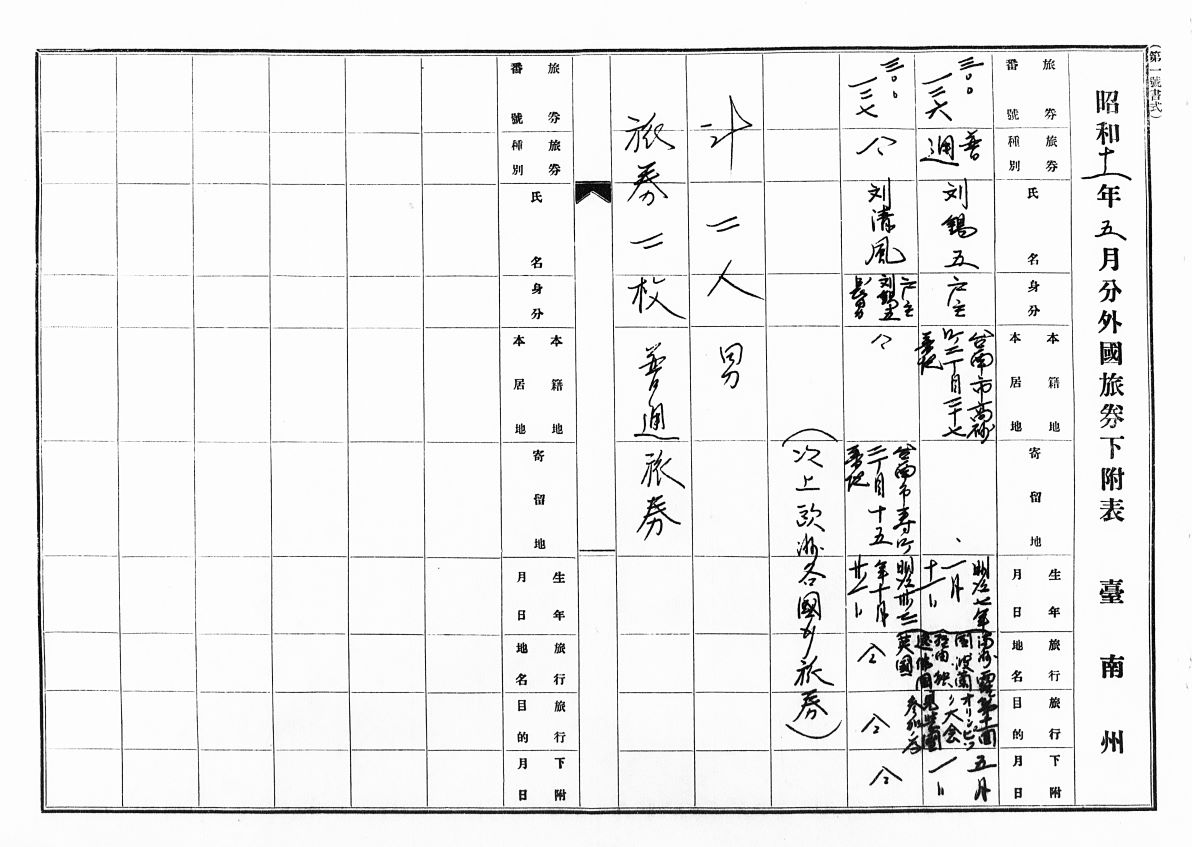 (第一號書式)
昭和十一年五月分外國旅券下附表 臺南州
旅券番號
旅券種別
氏名
身分
本籍地
本居地
寄留地
生年月日
旅行地名
旅行目的
下附月日
三〇〇一三六
普通
刘錫五
戸主
台南市高砂
町二丁目三十七
番地
明治七年
一月
十一日
第十一回
オリンピツク大会
五月
一日
三〇〇一三七
仝
刘清風
戸主
刘錫五
長男
仝
台南市寿町
二丁目十五
番地
明治卅三
年十月
廿二日
仝
仝
仝
(次上欧洲各國行旅券)
計 二人 男
旅券二枚 普通旅券
旅券番號
旅券種別
氏名
身分
本籍地
本居地
寄留地
生年月日
旅行地名
旅行目的
下附月日